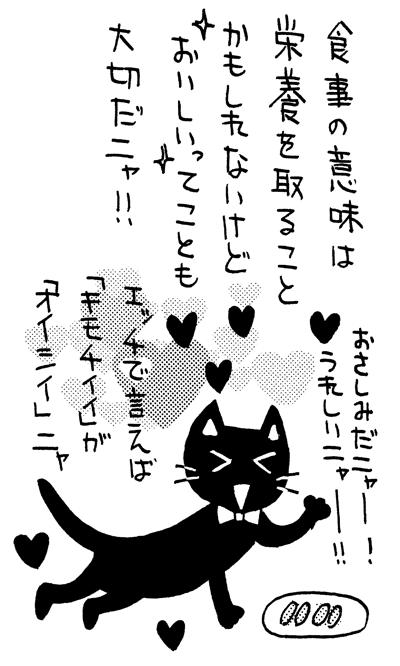 食事の意味は
栄養を取ること
かもしれないけど
おいしいってことも
大切だニャ!!
おさしみだニャー!
うれしいニャー!!
エッチで言えば
「キモチイイ」が
「オイシイ」ニャ